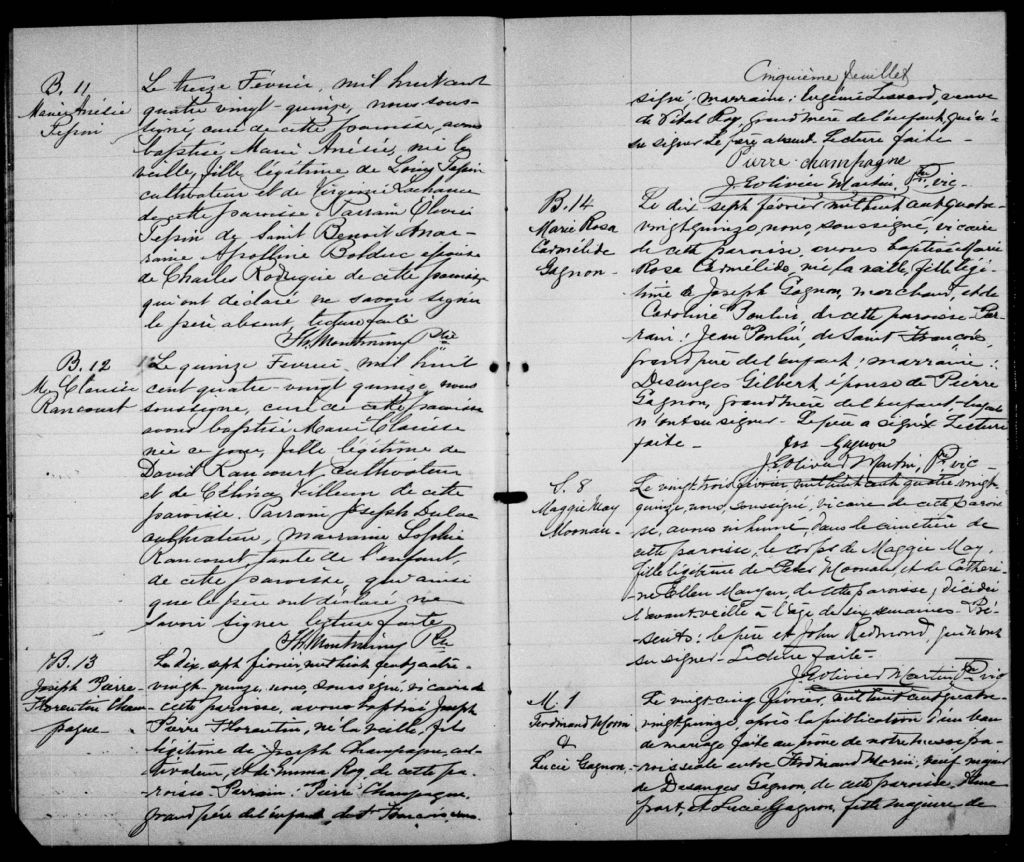 B. 11
Marie Anésie
Pepin
Le treize Février, mil huit cent
quatre vingt-quinze, nous sous-
signé, curé de cette paroisse, avons
baptisé Marie Anésie, née la
veille, fille légitime de Louis Pepin
cultivateur et de Virginie Lachance
de cette paroisse. Parrain
Pepin de Saint Benoit, Mar-
raine Apolline Bolduc épouse
de Charles Rodrigue de cette paroisse
qui ont déclaré ne savoir signer
le père absent, lecture faite
Th. Montminy Ptre
B. 12
M. Clarisse
Rancourt
Le quinze Fevrier, mil huit
cent quatre-vingt quinze, nous
soussigné, curé de cette paroisse
avons baptisé Marie Clarisse
née ce jour, fille légitime de
David Rancourt cultivateur
et de Célina Veilleux de cette
paroisse. Parrain Joseph Dulac
cultivateur, Marraine Sophie
Rancourt, tante de l'enfant,
de cette paroisse, qui ainsi
que le père ont déclaré ne
savoir signer lecture faite
Th. Montminy Ptre
B. 13
Joseph Pierre
Florentin Cham
pagne
Le dix-sept février, mil huit cent quatre-
vingt-quinze, nous, soussigné, vicaire de
cette paroisse, avons baptisé Joseph
Pierre Florentin, né la veille, fils
légitime de Joseph Champagne, cul-
tivateur, et de Emma Roy, de cette pa-
roisse. Parrain: Pierre Champagne,
grand père de l'enfant,
Cinquième feuillet
signé; marraine: Eugénie Lessard, veuve
de Vital Roy, grand'mère de l'enfant, qui n'a
su signer. Le père absent. Lecture faite-
Pierre Champagne
J. Olivier Martin, Ptre vic-
B. 14
Marie Rosa
Carmélide
Gagnon-
Le dix-sept février, mil huit cent quatre-
vingt quinze, nous, soussigné, vicaire
de cette paroisse, avons baptisé Marie
Rosa Carmélide, née la veille, fille légi-
time de Joseph Gagnon, marchand, et de
Caroline Poulin, de cette paroisse. Par-
rain: Jean Poulin, de Saint-François,
grand père de l'enfant; marraine:
Desanges Gilbert épouse de Pierre
Gagnon, grand'mère de l'enfant, lesquels
n'ont su signer. Le père a signé. Lecture
faite-
Jos Gagnon
J. Olivier Martin, Ptre vic-
S. 8
Maggie May
Moonan-
Le vingt trois février, mil huit cent quatre vingt-
quinze, nous, soussigné, vicaire de cette parois
se, avons inhumé, dans le cimetière de
cette paroisse, le corps de Maggie May,
fille légitime de Peter Moonan, et de Catheri-
ne Ellen de cette paroisse, décédée
l'avant-veille à l'âge de six semaines. Pré-
sents: le père et John Redmond, qui n'ont
su signer. Lecture faite-
J. Olivier Martin Ptre vic
M. 1
Ferdinand Morin
&
Lucie Gagnon.
Le vingt-cinq février, mil huit cent quatre
vingt quinze, après la publication d'un ban
de mariage faite au prône de notre messe pa-
roissiale entre Ferdinand Morin, veuf majeur
de Desanges Gagnon, de cette paroisse, d'une
part, et Lucie Gagnon, fille majeure de